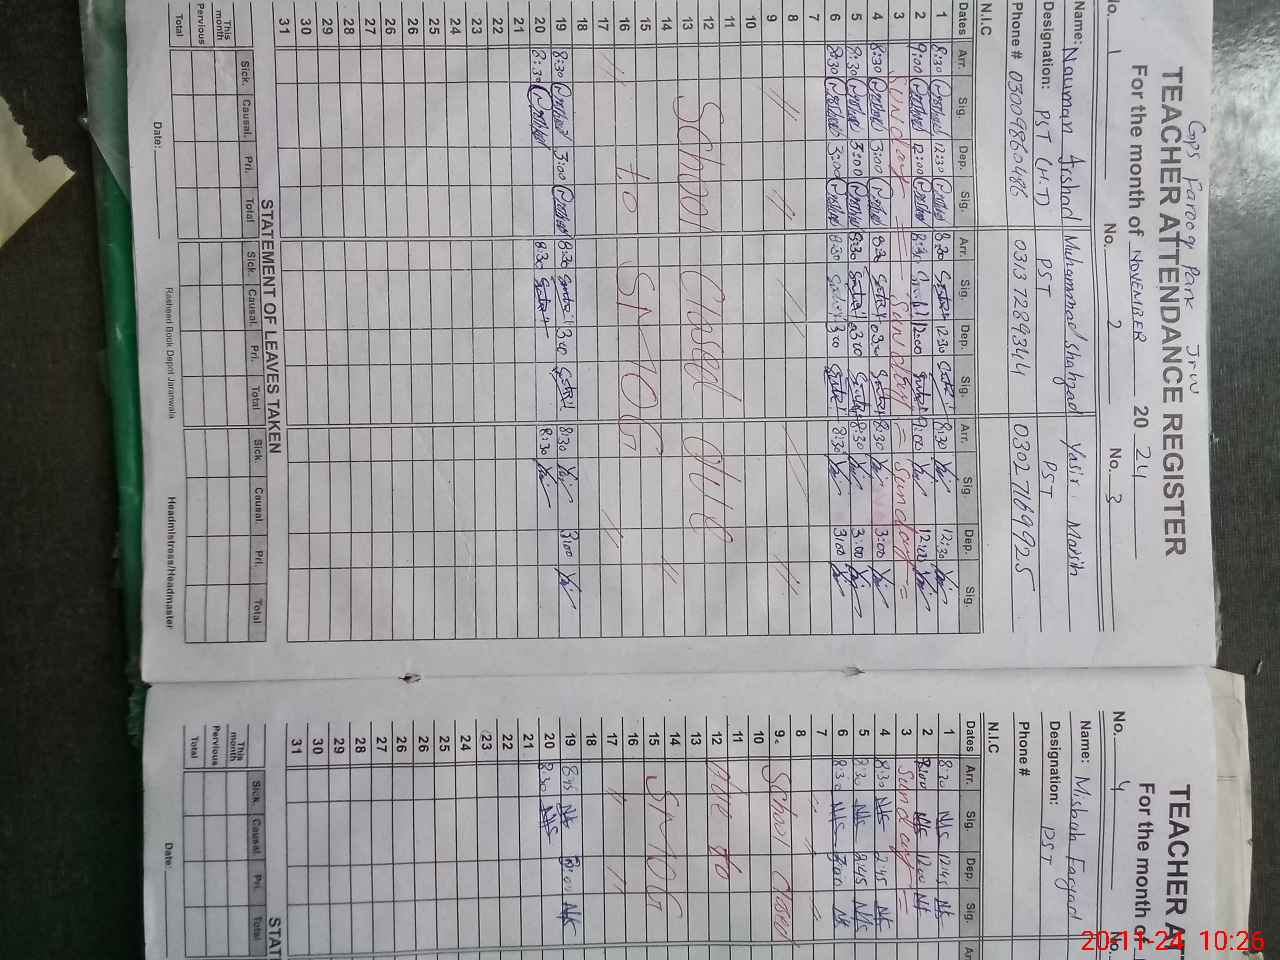 Gps Farooq Park Jrw
TEACHER ATTENDANCE REGISTER
For the month of NOVEMBER 2024
No. 1 No. 2 No. 3
Name: Nauman Arshad Muhammad Shahzad Yasir Marsih
Designation: PST (H.T) PST PST
Phone # 03009860486 03137289344 03027169925
N.I.C
Dates Arr. Sig. Dep. Sig. Arr. Sig. Dep. Sig. Arr. Sig. Dep. Sig.
1 8:30 12:30 8:30 12:30 8:30 12:30
2 9:00 12:00 8:30 12:00 9:00 12:00
3 Sunday = Sunday = Sunday =
4 8:30 3:00 8:30 3:00 8:30 3:00
5 8:30 3:00 8:30 3:00 8:30 3:00
6 8:30 3:00 8:30 3:00 8:30 3:00
7
8
9
10
11
12 School Closed due
13
14
15 to SMOG
16
17
18
19 8:30 3:00 8:30 3:00 8:30 3:00
20 8:30 8:30 8:30
21
22
22
23
24
25
26
26
27
28
29
30
31
STATEMENT OF LEAVES TAKEN
Sick. Causal. Pri. Total Sick. Causal. Pri. Total Sick Causal. Pri. Total
This month
Pervious
Total
Date: Rasheed Book Depot Jaranwala Headmistress/Headmaster
TEACHER AT
For the month of
No. 4 No.
Name: Misbah Fayyad
Designation: PST
Phone #
N.I.C
Dates Arr. Sig. Dep. Sig. Arr
1 8:30 12:45
2 8:00 12:00
3 Sunday =
4 8:30 2:45
5 8:30 2:45
6 8:30 3:00
7
8
9 School Closed
10
11
12 due to
13
14
15 SMOG
16
17
18
19 8:45 3:00
20 8:30
21
22
22
23
24
25
26
26
27
28
29
30
31
STAT
Sick. Causal. Pri. Total
This month
Pervious
Total
Date:
20-11-24 10:26